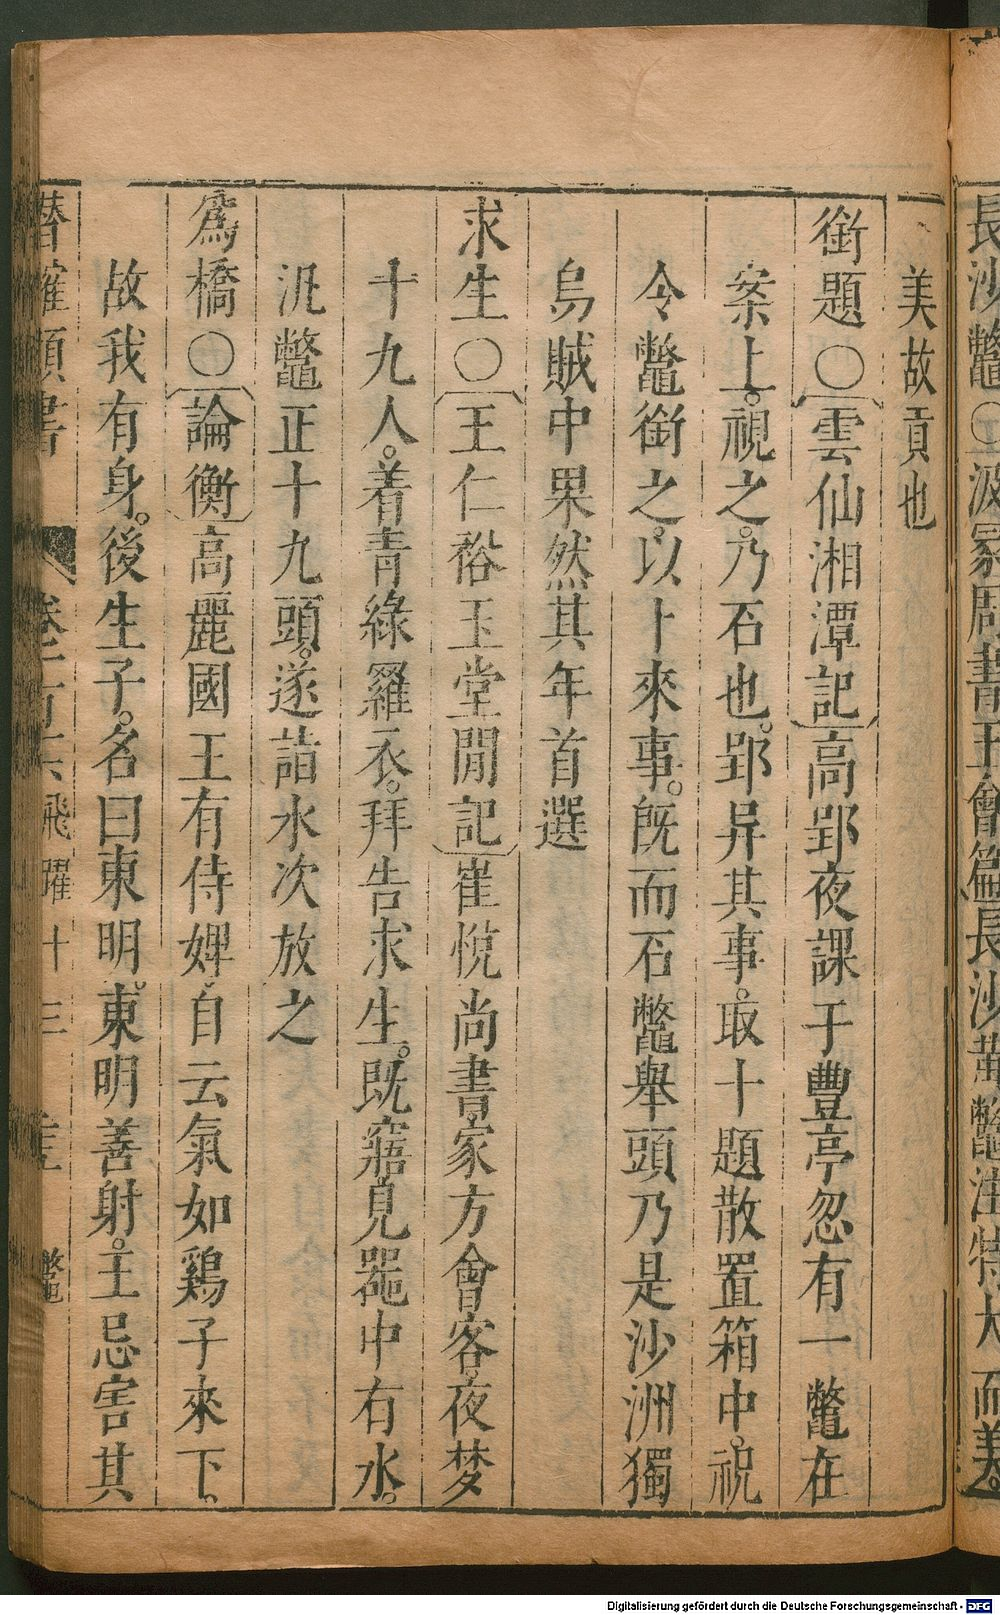 長沙鼈〇汲冢周書王會篇長沙鼈注特大而美。
美故貢也
銜題〇雲仙湘潭記高郢夜課于豐亭忽有一鼈在
案上。視之。乃石也。郢异其事。取十題散置箱中。祝
令鼈銜之。以卜來事。旣而石鼈舉頭乃是沙洲獨
鳥賊中果然其年首選
求生〇王仁裕玉堂閒記崔悅尚書。家方會客。夜梦
十九人。着青綠羅衣。拜告求生。旣寤見噐中有水。
汎鼈正十九頭。遂詣水次放之
爲橋〇論衡高麗國王有侍婢。自云氣如鷄子來下。
故我有身。後生子。名曰東明。東明善射。王忌害其
潛確類書 卷之一百 飛躍十三 鼈
Digitalisierung gefördert durch die Deutsche Forschungsgemeinschaft - DFG